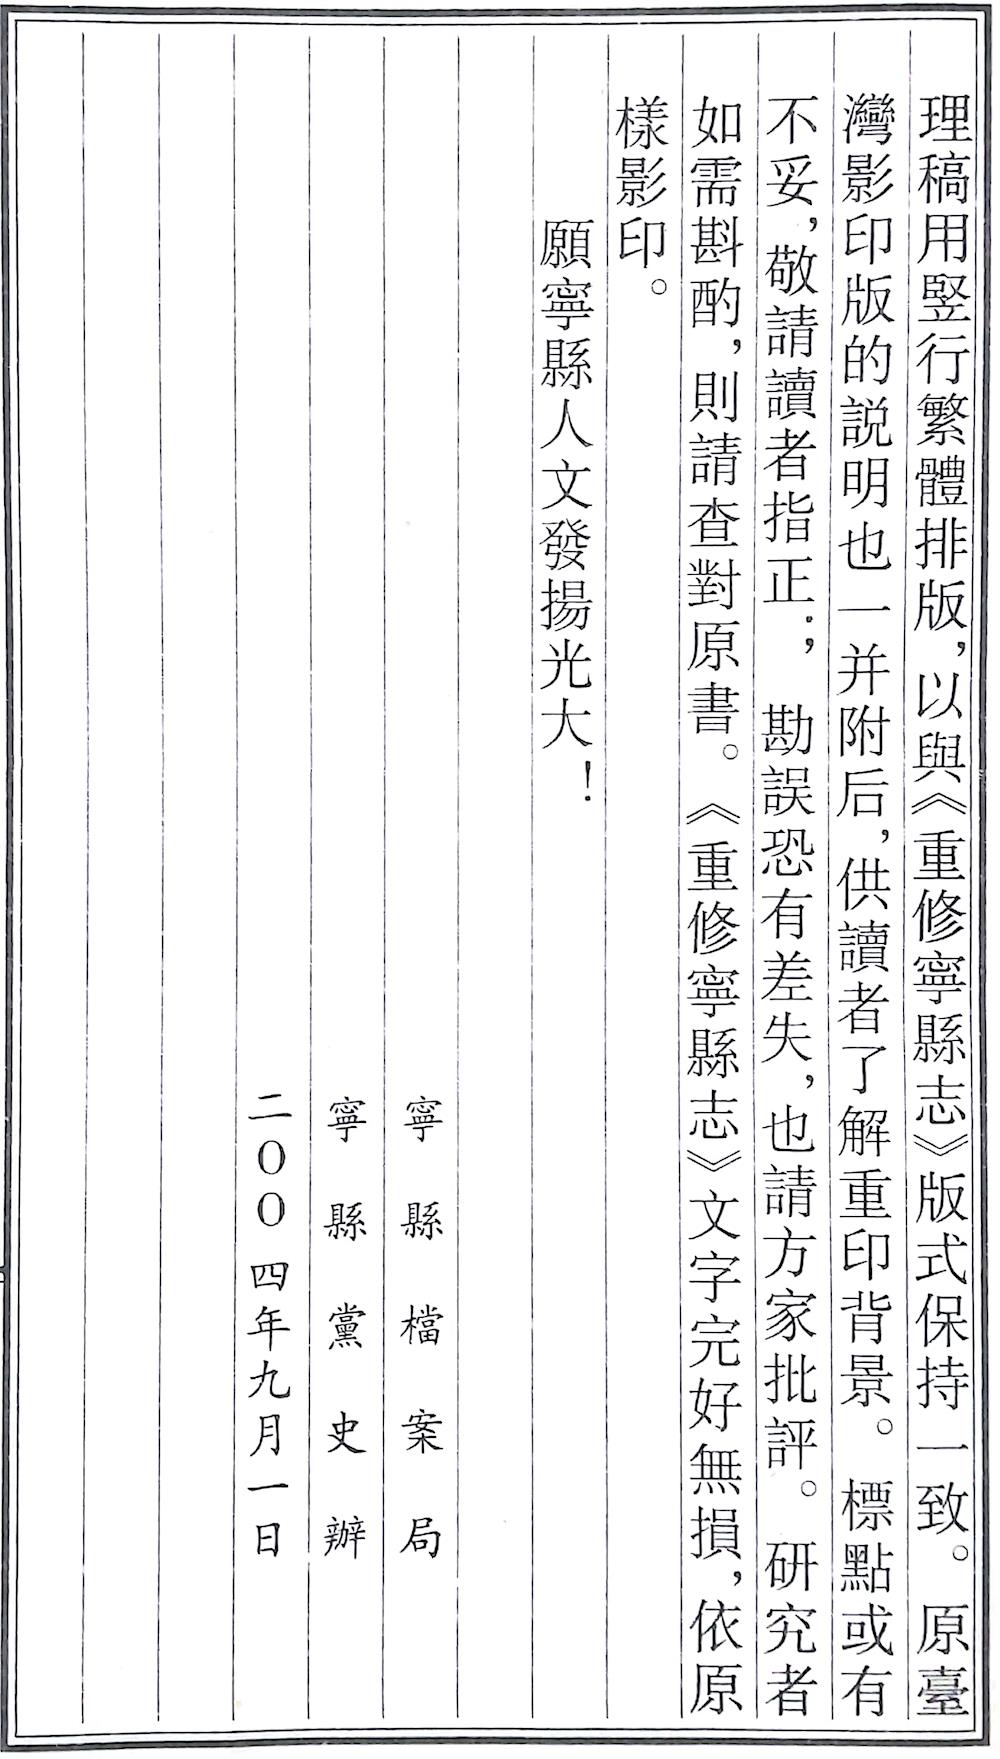 理稿用竪行繁體排版，以與《重修寧縣志》版式保持一致。原臺
灣影印版的説明也一并附后，供讀者了解重印背景。標點或有
不妥，敬請讀者指正；勘誤恐有差失，也請方家批評。研究者
如需斟酌，則請查對原書。《重修寧縣志》文字完好無損，依原
樣影印。
願寧縣人文發揚光大！
寧縣檔案局
寧縣黨史辦
二〇〇四年九月一日